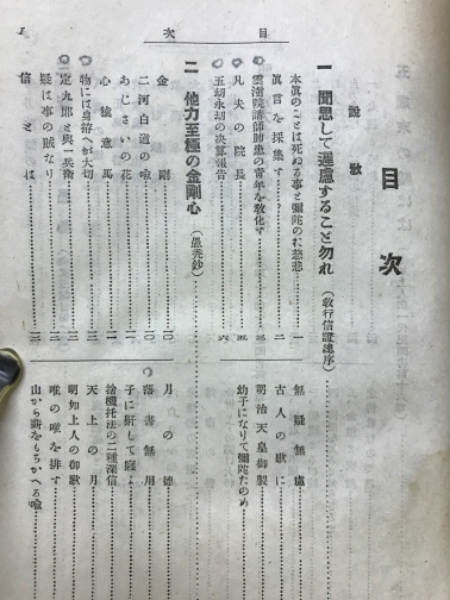 目次
目次
説教
一 聞思して遅慮すること勿れ（教行信証総序）
本眞のことは死ぬる事と彌陀のお慈悲 一
眞言を採集す 二
雲澍院講師肺患の青年を敎化す
凡夫の院長 五
五劫永劫の決算報告 六
二 他力至極の金剛心（愚禿鈔）
金剛 一〇
二河白道の喩 一〇
あじさいの花 一一
心猿意馬 一一
物には身綺へが大切
定九郎と與一兵衛 一二
疑は事の賊なり
信とは
無疑無慮
古人の歌に
明治天皇御製
幼子になりて彌陀たのめ
月の德
落書無用
子に斬して
捨機托法の二種深信
天上の月
明知上人の御歌
唯の唯を排す
山から薪をもちかへる喩